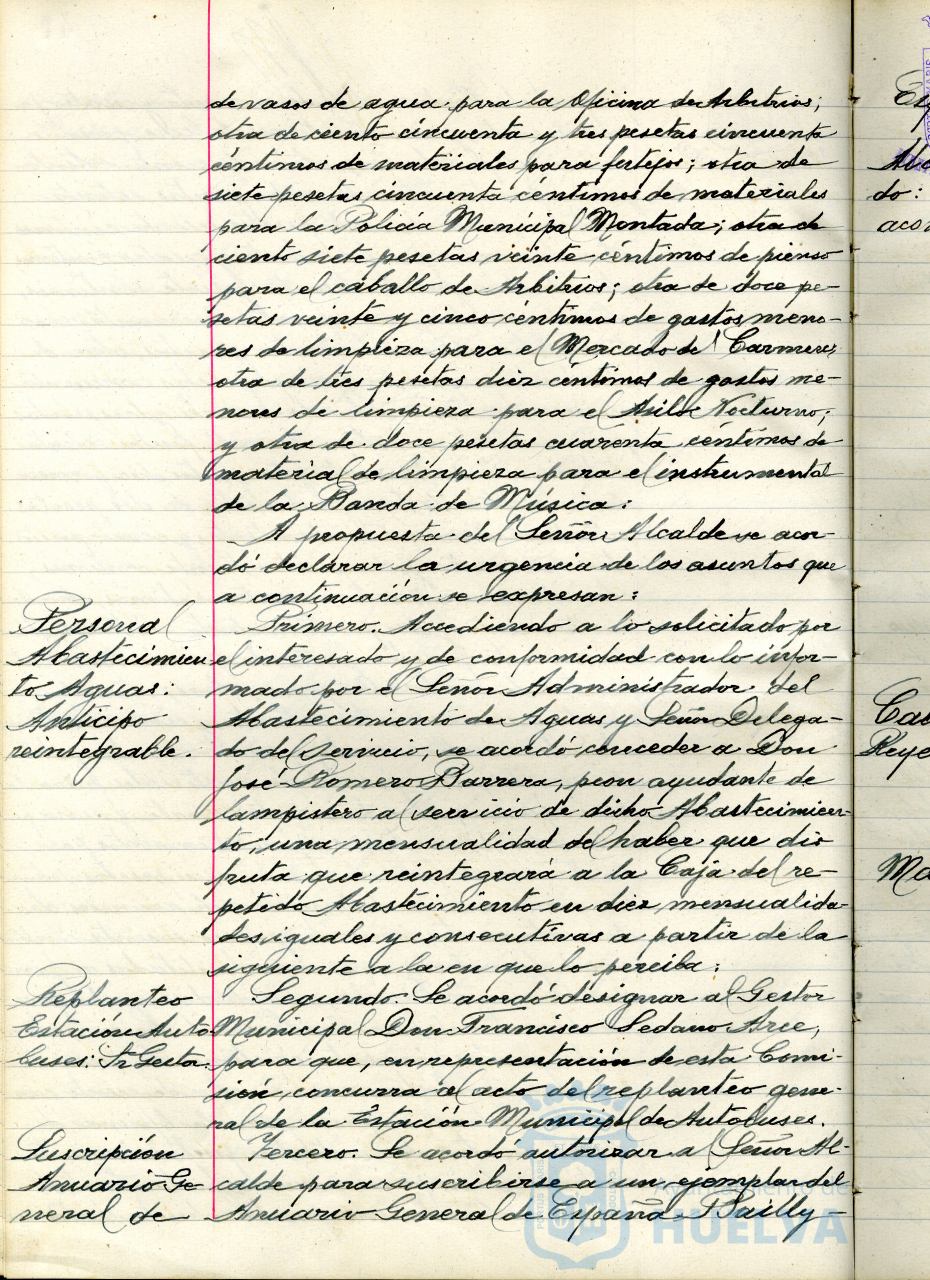 de vasos de agua para la Oficina de Arbitrios;
otra de ciento cincuenta y tres pesetas cincuenta
céntimos de materiales para festejos; otra de
siete pesetas cincuenta céntimos de materiales
para la Policía Municipal Montada; otra de
ciento siete pesetas veinte céntimos de pienso
para el caballo de Arbitrios; otra de doce pe-
setas veinte y cinco céntimos de gastos meno-
res de limpieza para el Mercado del Carmen;
otra de tres pesetas diez céntimos de gastos me-
nores de limpieza para el Asilo Nocturno;
y otra de doce pesetas cuarenta céntimos de
material de limpieza para el instrumental
de la Banda de Música:
A propuesta del Señor Alcalde se acor-
dó declarar la urgencia de los asuntos que
a continuación se expresan:
Personal
Abastecimien-
to Aguas:
Anticipo
reintegrable.
Primero. Accediendo a lo solicitado por
el interesado y de conformidad con lo infor-
mado por el Señor Administrador del
Abastecimiento de Aguas y Señor Delega-
do del servicio, se acordó conceder a Don
José Romero Barrera, peon ayudante de
lampistero al servicio de dicho Abastecimien-
to, una mensualidad del haber que dis
fruta que reintegrará a la Caja del re-
petido Abastecimiento en diez mensualida-
des iguales y consecutivas a partir de la
siguiente a la en que lo perciba:
Replanteo
Estación Auto-
buses: Sr Gestor.
Segundo. Se acordó designar al Gestor
Municipal Don Francisco Sedano Arce,
para que, en representación de esta Comi-
sión, concurra al acto del replanteo gene-
ral de la Estación Municipal de Autobuses.
Suscripción
Anuario Ge-
neral de
Tercero. Se acordó autorizar al Señor Al-
calde para suscribirse a un ejemplar del
Anuario General de España, Bailly-
Ayuntamiento de
HUELVA
Cas
Reye
do:
acor